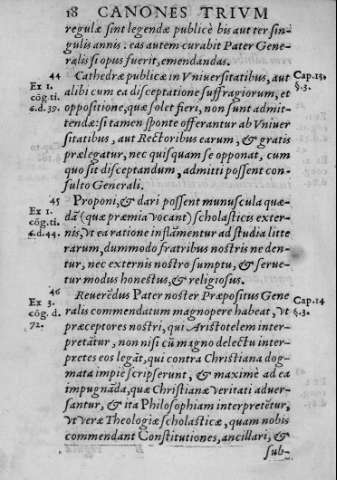 18 CANONES TRIVM
regulæ sint legendæ publicè bis aut ter sin-
gulis annis. eas autem curabit Pater Gene-
ralis si opus fuerit, emendandas.
44 Cathedræ publicæ in Vniuersitatibus, aut Cap.13.
Ex 1. alibi cum ea disceptatione suffragiorum, et §.3.
cõg.ti. oppositione, quæ solet fieri, non sunt admit-
c.d.39. tendæ: si tamen sponte offerantur ab Vniuer
sitatibus, aut Rectoribus earum, & gratis
prælegatur, nec quisquam se opponat, cum
quo sit disceptandum, admitti possent con-
sulto Generali.
45 Proponi, & dari possent munuscula quæ-
Ex 1. dã (quæ præmia vocant) scholasticis exter-
cõg.ti. nis, vt ea ratione inflãmẽtur ad studia litte
c.d.44. rarum, dummodo fratribus nostris ne den-
tur, nec externis nostro sumptu, & serue-
tur modus honestus, & religiosus.
46 Reuerẽdus Pater noster Præpositus Gene Cap.14
Ex 3. ralis commendatum magnopere habeat, vt §.3.
cõg. d. præceptores nostri, qui Aristotelem inter-
72. pretãtur, non nisi cũ magno delectu inter-
pretes eos legãt, qui contra Christiana dog-
mata impiè scripserunt, & maximè ad ea
impugnãda, quæ Christianæ veritati aduer-
santur, & ita Philosophiam interpretẽtur,
vt veræ Theologiæ scholasticæ, quam nobis
commendant Constitutiones, ancillari, &
sub-